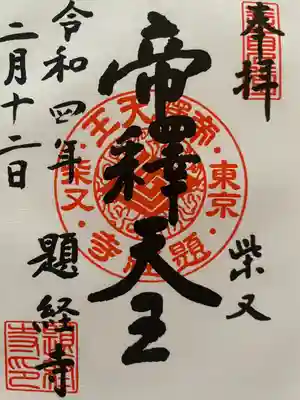 奉拝
柴又
帝釋天王
題経寺
令和四年
二月十二日
帝釋天王・東京・題経寺・柴又